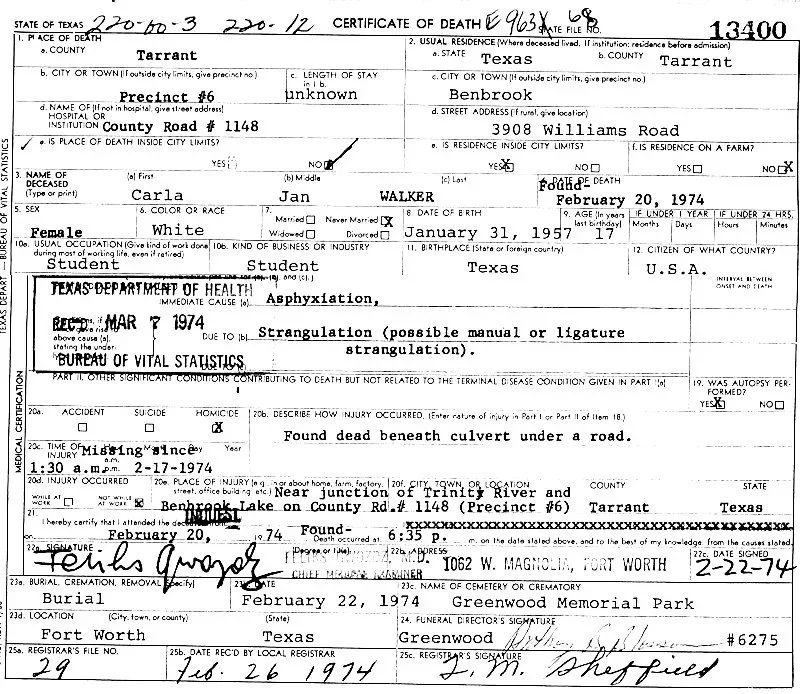 STATE OF TEXAS 220-60-3 220-12 CERTIFICATE OF DEATH E963X 68 STATE FILE NO. 13400
1. PLACE OF DEATH
a. COUNTY
Tarrant
2. USUAL RESIDENCE (Where deceased lived. If institution: residence before admission)
a. STATE Texas b. COUNTY Tarrant
b. CITY OR TOWN (If outside city limits, give precinct no.)
Precinct #6
c. LENGTH OF STAY in 1 b.
unknown
c. CITY OR TOWN (If outside city limits, give precinct no.)
Benbrook
d. NAME OF (If not in hospital, give street address)
HOSPITAL OR
INSTITUTION County Road # 1148
d. STREET ADDRESS (If rural, give location)
3908 Williams Road
e. IS PLACE OF DEATH INSIDE CITY LIMITS?
YES NO
e. IS RESIDENCE INSIDE CITY LIMITS?
YES X NO
f. IS RESIDENCE ON A FARM?
YES NO X
3. NAME OF DECEASED (Type or print)
(a) First (b) Middle (c) Last
Carla Jan WALKER
4. DATE OF DEATH
Found-
February 20, 1974
5. SEX
Female
6. COLOR OR RACE
White
7.
Married Never Married X
Widowed Divorced
8. DATE OF BIRTH
January 31, 1957
9. AGE (In years last birthday)
17
IF UNDER 1 YEAR
Months Days
IF UNDER 24 HRS.
Hours Minutes
10a. USUAL OCCUPATION (Give kind of work done during most of working life, even if retired)
Student
10b. KIND OF BUSINESS OR INDUSTRY
Student
11. BIRTHPLACE (State or foreign country)
Texas
12. CITIZEN OF WHAT COUNTRY?
U.S.A.
INTERVAL BETWEEN
ONSET AND DEATH
TEXAS DEPARTMENT OF HEALTH
REC'D MAR 7 1974
BUREAU OF VITAL STATISTICS
IMMEDIATE CAUSE (a) Asphyxiation,
above cause (a),
stating the under-
DUE TO (b) Strangulation (possible manual or ligature
strangulation).
DUE TO (c)
PART II. OTHER SIGNIFICANT CONDITIONS CONTRIBUTING TO DEATH BUT NOT RELATED TO THE TERMINAL DISEASE CONDITION GIVEN IN PART I(a)
19. WAS AUTOPSY PERFORMED?
YES X NO
MEDICAL CERTIFICATION
20a. ACCIDENT SUICIDE HOMICIDE
X
20b. DESCRIBE HOW INJURY OCCURRED. (Enter nature of injury in Part I or Part II of Item 18.)
Found dead beneath culvert under a road.
20c. TIME OF INJURY
Missing since
Year
1:30 a.m. p.m. 2-17-1974
20d. INJURY OCCURRED
WHILE AT WORK NOT WHILE AT WORK X
20e. PLACE OF INJURY (e.g. in or about home, farm, factory, street, office building, etc.)
20f. CITY, TOWN, OR LOCATION COUNTY STATE
Near junction of Trinity River and
Benbrook Lake on County Rd.# 1148 (Precinct #6) Tarrant Texas
21. INQUEST
I hereby certify that I attended the deceased
on February 20, 1974 Found- Death occurred at 6:35 p. m. on the date stated above, and to the best of my knowledge from the causes stated.
22a. SIGNATURE (Degree or title)
Feliks Gwozdz
FELIKS GWOZDZ, M.D.
CHIEF MEDICAL EXAMINER
22b. ADDRESS
1062 W. MAGNOLIA, FORT WORTH
22c. DATE SIGNED
2-22-74
23a. BURIAL, CREMATION, REMOVAL (Specify)
Burial
23b. DATE
February 22, 1974
23c. NAME OF CEMETERY OR CREMATORY
Greenwood Memorial Park
23d. LOCATION (City, town, or county) (State)
Fort Worth Texas
24. FUNERAL DIRECTOR'S SIGNATURE
Greenwood #6275
25a. REGISTRAR'S FILE NO.
29
25b. DATE REC'D BY LOCAL REGISTRAR
Feb. 26 1974
25c. REGISTRAR'S SIGNATURE
L.M. Sheffield
TEXAS DEPART — BUREAU OF VITAL STATISTICS